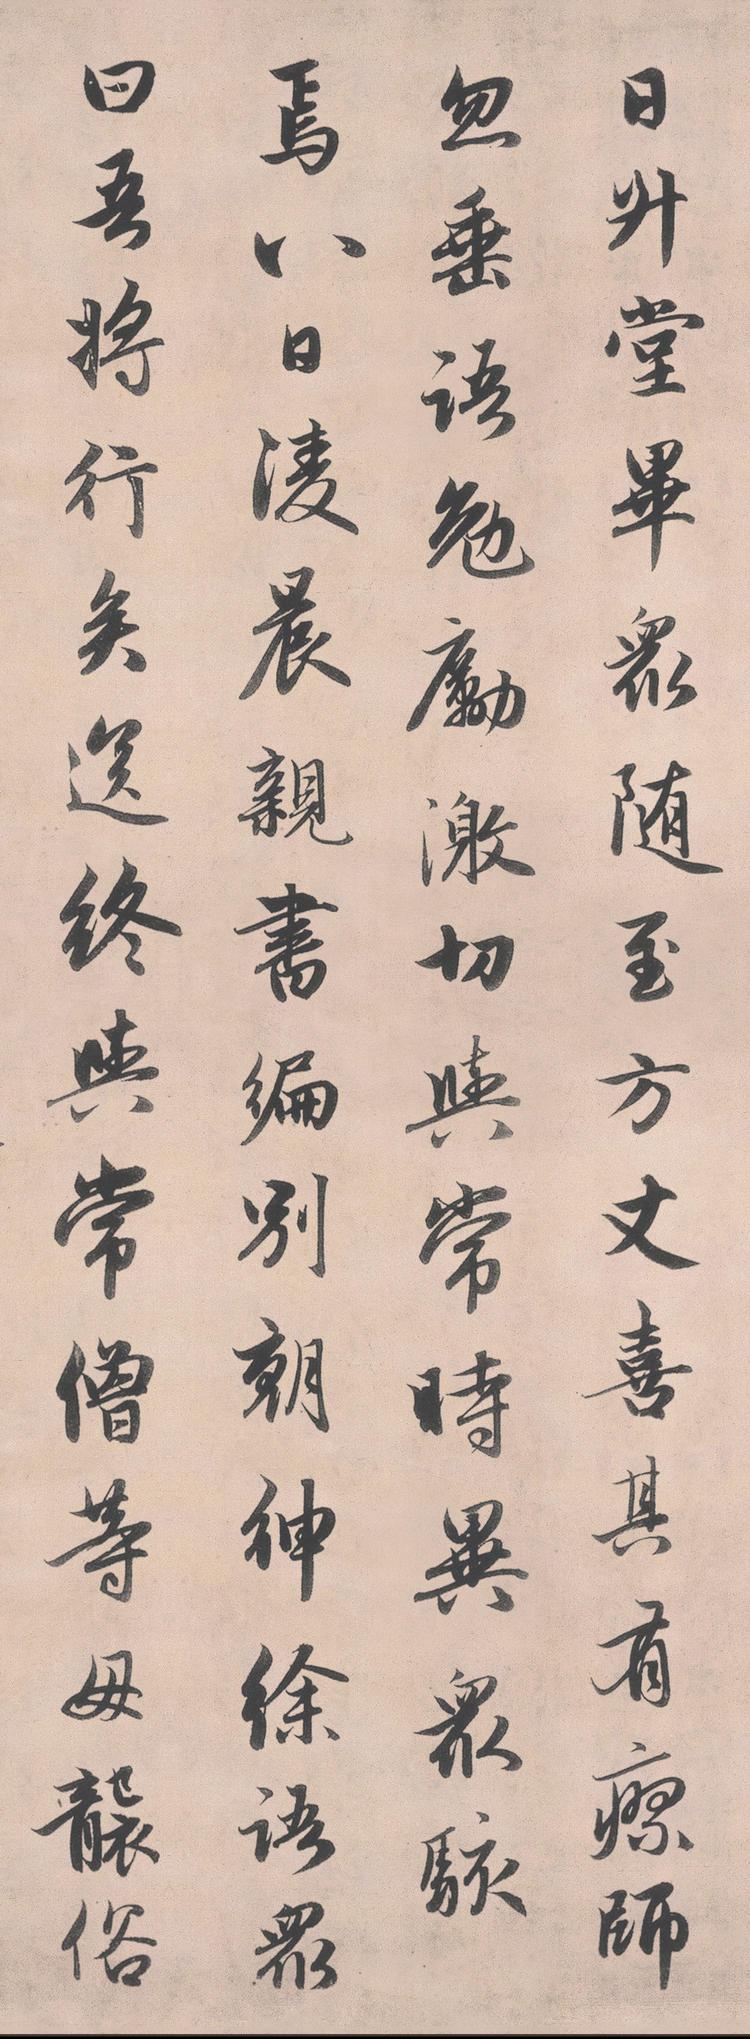 日升堂畢眾随至方丈喜其有瘳師
忽垂語勉勵激切與常時異眾駭
焉八日淩晨親書徧別朝紳徐語眾
曰吾將行矣送終與常僧等毋襲俗